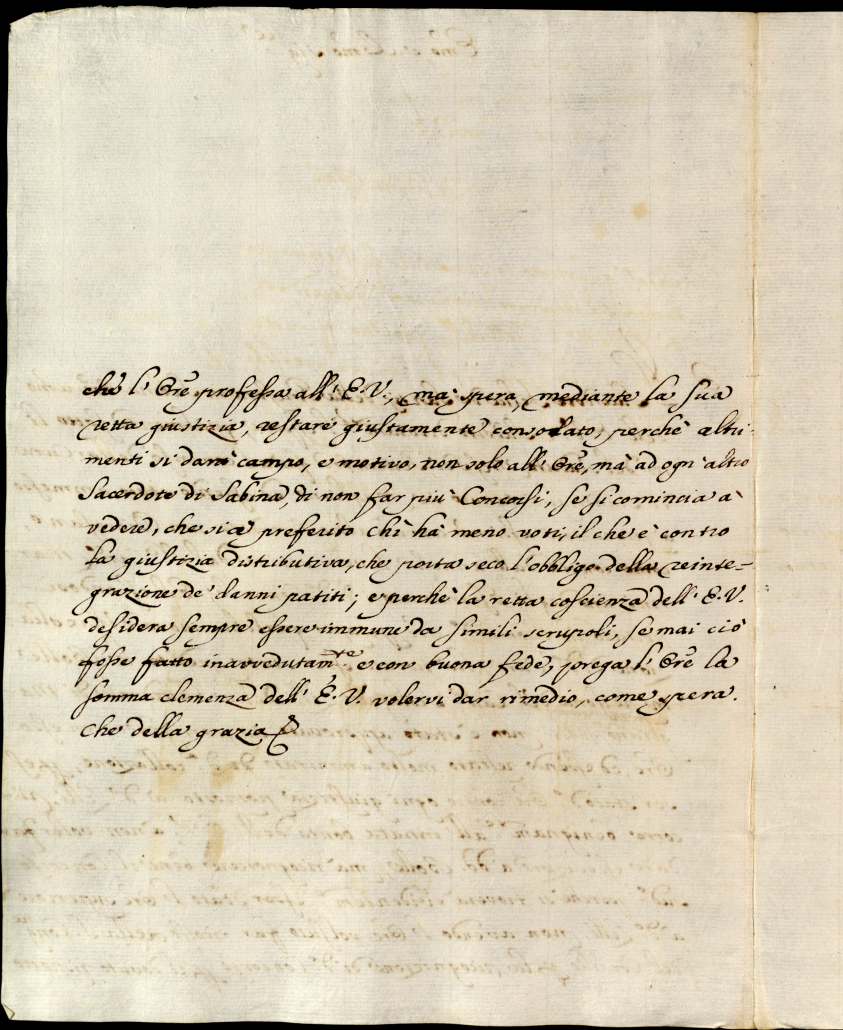 che l'Ore professa all'E.V., mà spera, mediante la sua
retta giustizia, restare giustamente consolato, perche altri=
menti si darà campo, e motivo, non solo all'Ore, mà ad ogn'altro
Sacerdote di Sabina, di non far più Concorsi, se si comincia a
vedere, che si è preferito chi hà meno voti, il che è contro
la giustizia distributiva, che porta seco l'obbligo della reinte=
grazione de' danni patiti; e perche la retta coscienza dell'E.V.
desidera sempre essere immune da simili scrupoli, se mai ciò
fosse fatto inavvedutamte e con buona fede, prega l'Ore la
somma clemenza dell'E.V. volervi dar rimedio, come spera.
Che della grazia